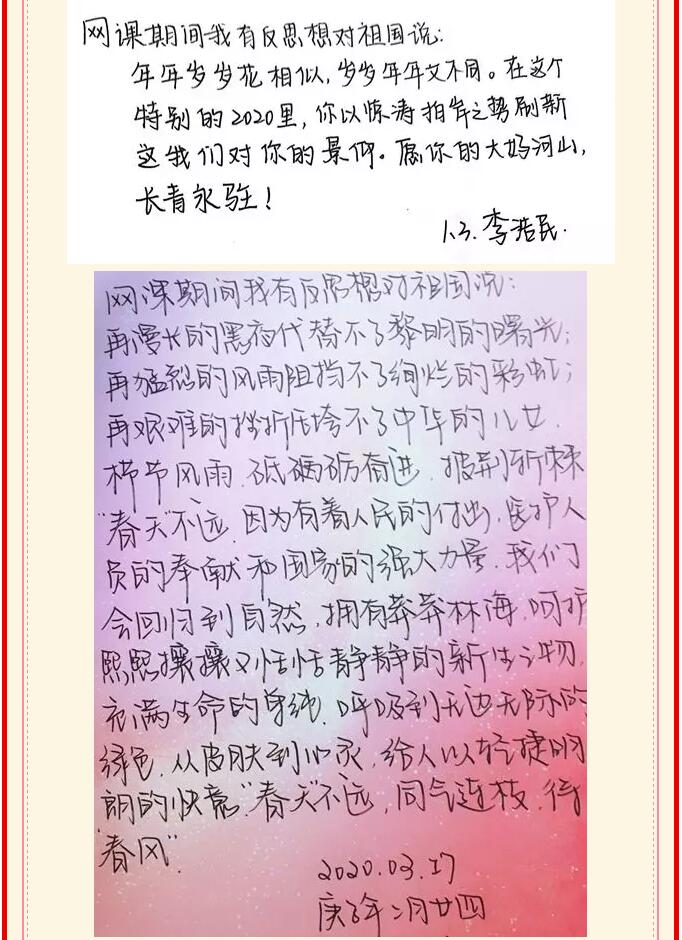 网课期间我有反思想对祖国说:
年年岁岁花相似,岁岁年年文不同。在这个
特别的2020里,你以惊涛拍岸之势刷新
这我们对你的景仰。愿你的大妈河山,
长青永驻!
1.3.李浩民.
网课期间我有反思想对祖国说:
再漫长的黑夜代替不了黎明的曙光;
再猛烈的风雨阻挡不了绚烂的彩虹;
再艰难的挫折压垮不了中华的儿女.
栉节风雨.砥砺奋进.披荆斩棘
“春天”不远.因为有着人民的付出,医护人
员的奉献和国家的强大力量.我们
会回归到自然,拥有莽莽林海,呵护
熙熙攘攘又恬恬静静的新生之物.
充满生命的.呼吸到无边无际的
绿色.从皮肤到心灵.给人以轻捷明
朗的快意.“春天”不远,同气连枝.待
“春风”.
2020.03.17
庚子年二月廿四